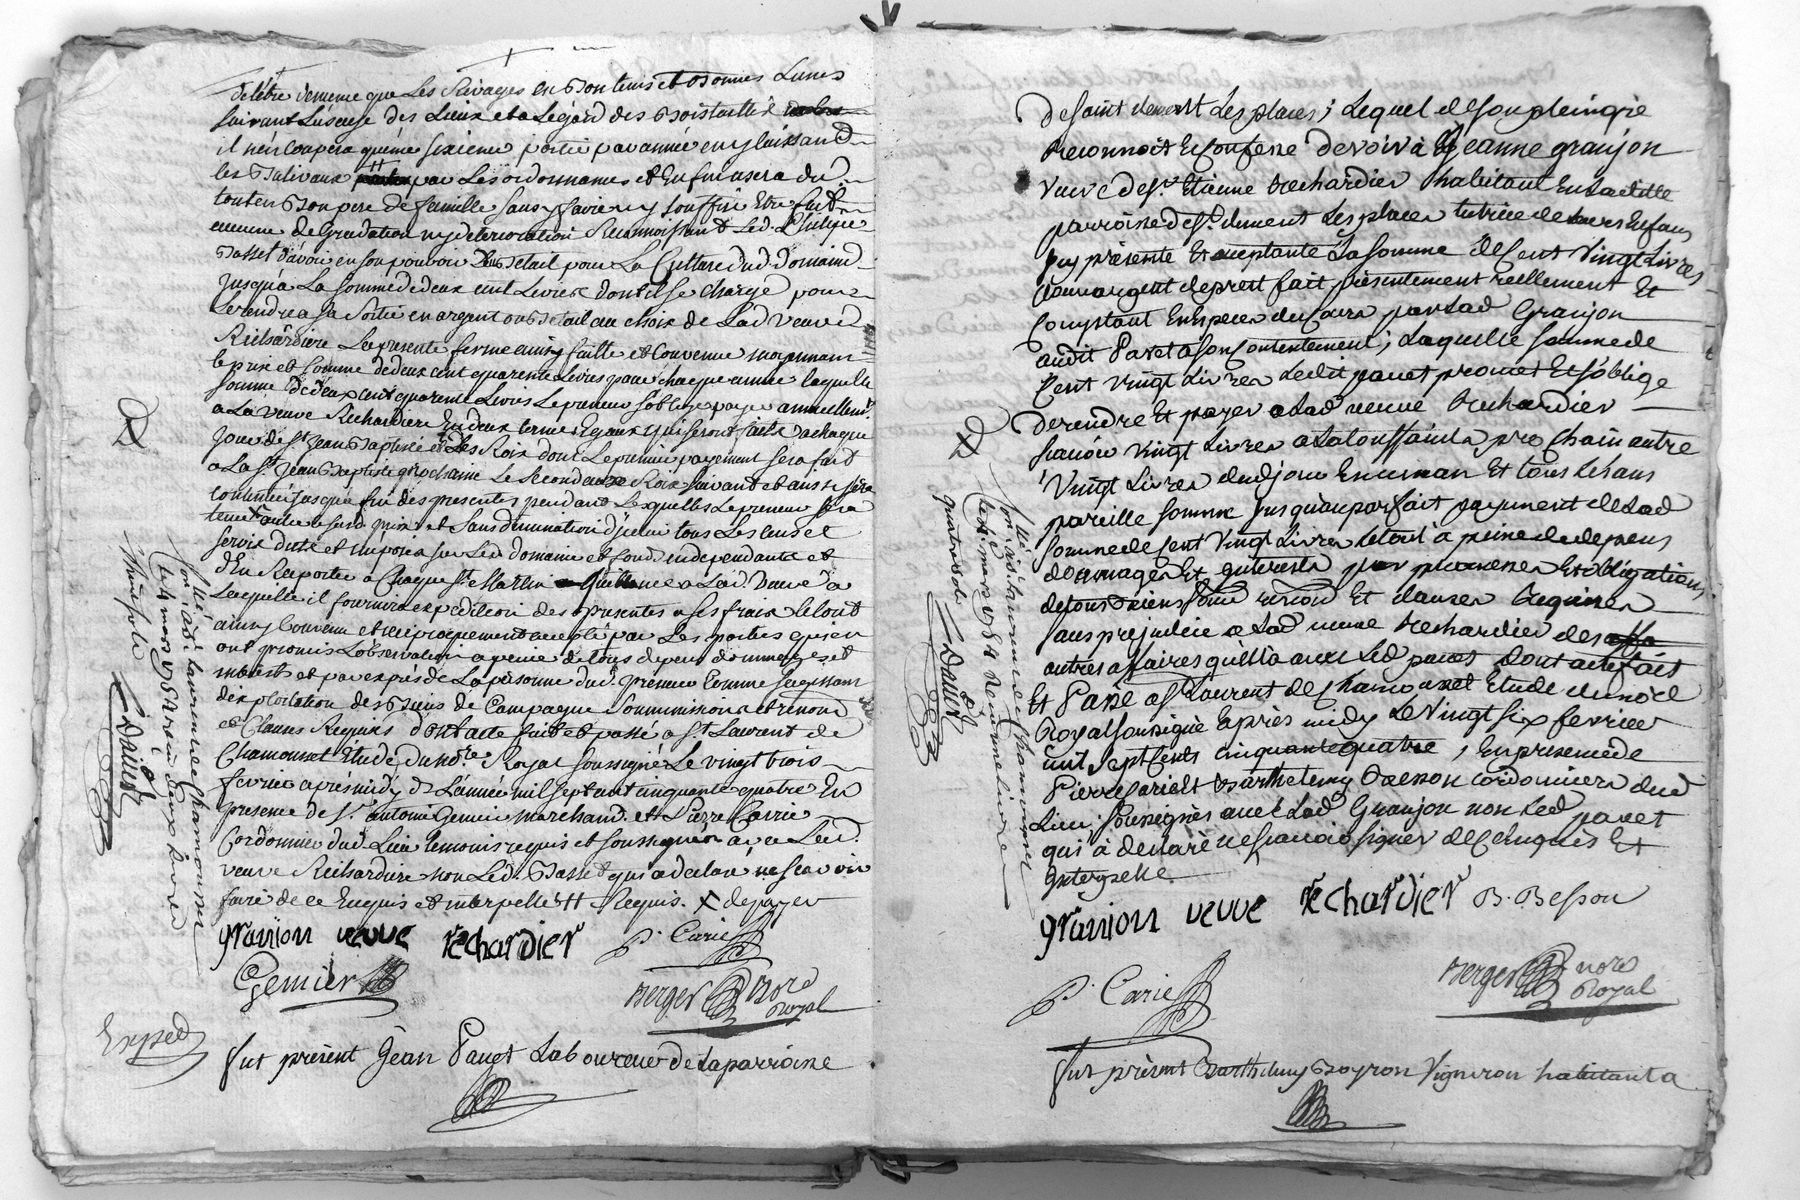 de même que Les Sivages en Bon tems et Bonnes Lunes
Suivant Lusage des Lieux et a Légard des Bois taillis
il n'en Coupera qu'une sixieme partie par année en y laissant
les Baliveaux par Les ordonnances et Enfin usera du
tout en Bon pere de famille sans y faire ny souffrir Etre fait
aucune degradation ny deterioration Reconnoissant Led. Philipe
Basset d'avoir en son pouvoir Du Betail pour La Culture dud. Domaine
jusqu'a La somme de deux cent Livres dont il se charge pour
Le rendre a sa sortie en argent ou Betail au choix de Lad. veuve
Richardiere La presente ferme ainsy faitte et Convenue moyennant
le prix et somme de deux cent quarente Livres pour chaque année laquelle
somme de deux cent quarente Livres Le preneur s'oblige payer annuellemt.
a La veuve Richardiere En deux termes Egaux qui seront faits a chaque
jour de St. Jean Baptiste et des Rois dont Le premier payement sera fait
a La St. Jean Baptiste prochaine Le second aux Rois suivant et ainsi sera
continué jusqu'a fin des presentes pendant Lesquelles Le preneur sera
tenu outre le susd. prix et sans diminution d'iceluy tous Les cens et
servis duts et imposés sur Led. domaine et fonds independants et
d'En Rapporter a Chaque St. Martin Quittance a Lad. veuve a
Laquelle il fournira expedition des presentes a ses fraix Le tout
ainsy Convenu et reciproquement accepté par Les parties qui en
ont promis L'observation a peine de tous depens dommages et
interests et par exprès de La personne dud. preneur comme s'agissant
d'exploitation des Biens de Campagne soummissions et renon.
et Clauses Requises dont acte fait et passé a St. Laurent de
Chamousset Etude du nore. Royal soussigné Le vingt trois
fevrier aprés midy de L'année mil sept cent cinquante quatre En
presence de Sr. antoine Gemier marchand et Pierre Carrie
Cordonnier dud. Lieu temoins requis et soussignés avec Lad.
veuve Richardiere non Led. Basset qui a declaré ne scavoir
faire de ce Enquis et interpellé # Requis. X de payer
granion veuve rechardier P. Carie
Gemier
Berger Nore Royal
Exped
fut présent Jean Pauet Laboureur de La parroisse
Con.lé a St. laurent de Chamousset
Le 4 mars 1754 reçu deux livres
Dailet
de saint clement Les places ; Lequel de son plein gré
reconnoit Et confesse devoir à Jeanne granjon
veuve de Sr. Etienne Rechardier habitant En La ditte
parroisse de St. clement Les places tutrice de Leurs Enfans
icy présente Et acceptante La somme de Cent vingt Livres
pour argent de prest fait présentement reellement Et
Comptant En Especes du Cours par Lad. Granjon
audit Pavet à son Contentement ; Laquelle somme de
Cent vingt Livres Ledit pauet promet Et s'oblige
de rendre Et payer a Lad. veuve Rechardier
scavoir vingt Livres a La toussaint prochain autre
vingt Livres dud. jour En un an Et tous Les ans
pareille somme jusqu'au parfait payement de Lad.
somme de Cent vingt Livres Le tout à peine de depens
dommages Et interests par promesses Et obligations
de tous Biens soum. renon. Et clauses Requises
sans prejudice a Lad. veuve Rechardier des
autres affaires qu'Elle a avec Led. pauet Dont acte fait
Et Passé a St. Laurent de Chamousset Etude du nore.
Royal soussigné après midy Le vingt six fevrier
mil sept Cents cinquante quatre, En presence de
Pierre Carie Et Barthelemy Besson cordonniers dud.
Lieu, soussignés avec Lad. Granjon non Led. pavet
qui à declaré ne scavoir signer de Ce Enquis Et
interpellé.
granion veuve rechardier B. Besson
P. Carie
Berger nore Royal
fut présent Barthelemy Boyron Vigneron habitant a
Con.lé a St. laurent de Chamousset
Le 4 mars 1754 reçu
Dailet